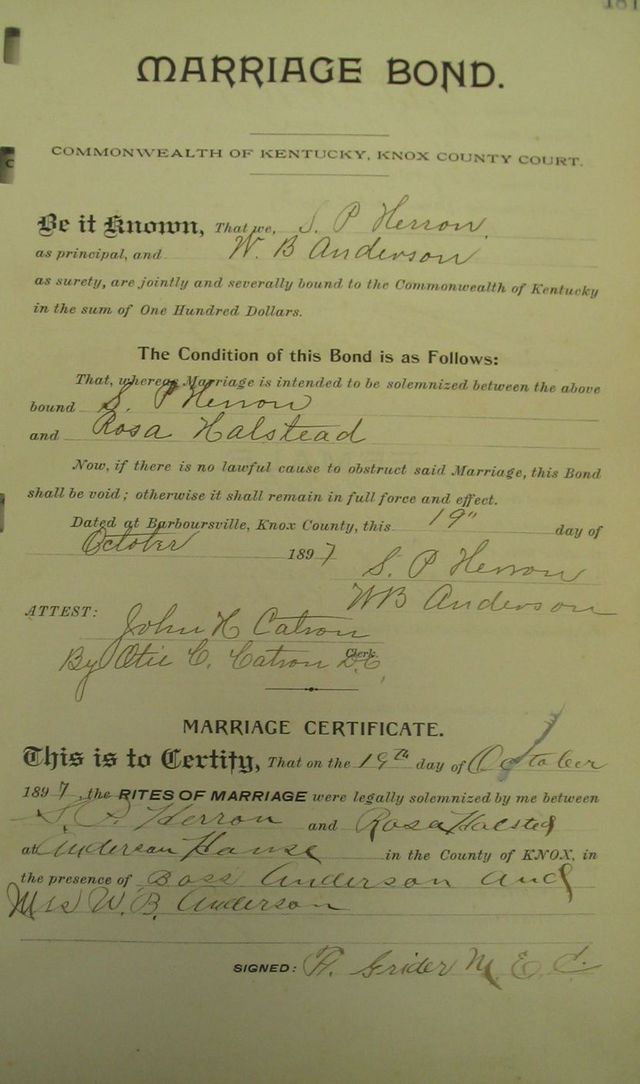 MARRIAGE BOND.
COMMONWEALTH OF KENTUCKY, KNOX COUNTY COURT.
Be it Known, That we, S. P Herron,
as principal, and W. B Anderson
as surety, are jointly and severally bound to the Commonwealth of Kentucky
in the sum of One Hundred Dollars.
The Condition of this Bond is as Follows:
That, whereas Marriage is intended to be solemnized between the above
bound S. P Herron
and Rosa Halstead
Now, if there is no lawful cause to obstruct said Marriage, this Bond
shall be void; otherwise it shall remain in full force and effect.
Dated at Barboursville, Knox County, this 19" day of
October 1897
S. P Herron
WB Anderson
ATTEST: John H Catron
Clerk.
By Otie C. Catron D.C,
MARRIAGE CERTIFICATE.
This is to Certify, That on the 19th day of October
1897, the RITES OF MARRIAGE were legally solemnized by me between
S. P. Herron and Rosa Halsted
at Anderson House in the County of KNOX, in
the presence of Boss Anderson and
Mrs W. B. Anderson
SIGNED: F. Grider M. E. C.